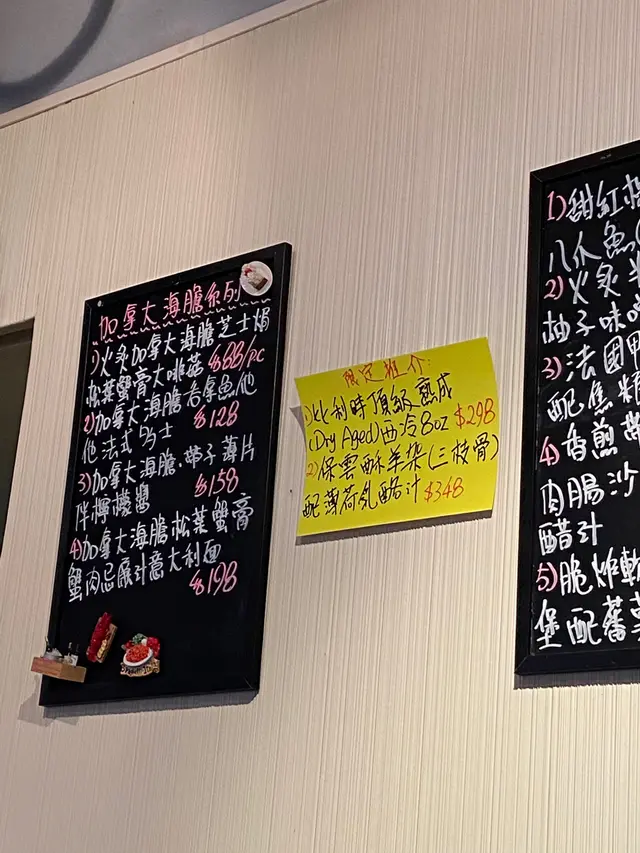 加拿大海膽系列
1)火炙加拿大海膽芝士焗
松葉蟹膏大啡菇 $88/pc
2)加拿大海膽吞拿魚他
他法式多士 $128
3)加拿大海膽.帶子薄片
伴檸檬醬 $158
4)加拿大海膽松葉蟹膏
蟹肉忌廉汁意大利面
$198
限定推介:
1)比利時頂級熟成
(Dry Aged)西冷8oz $298
2)保雲酥羊架(三枝骨)
配薄荷乳酪汁 $348
1)甜紅
八爪魚(
2)火炙
柚子味
3)法國鴨
配焦糖
4)香煎帶
肉腸沙
醋汁
5)脆炸軟
堡配蕃